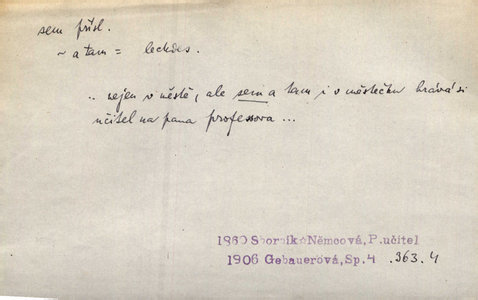 sem přísl.
~ a tam = leckdes.
.. nejen v městě, ale sem a tam i v městečku hrává si
učitel na pana professora ...
1860 Sborník Němcová, P.učitel
1906 Gebauerová, Sp.4 .363.4